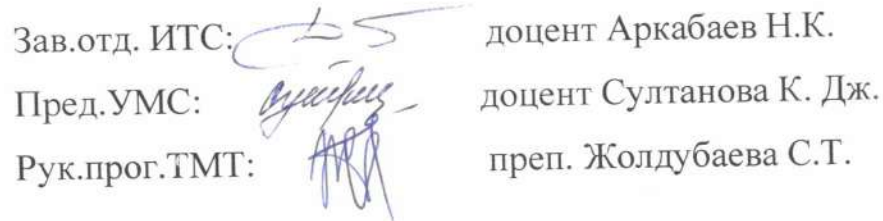 Зав.отд. ИТС: доцент Аркабаев Н.К.
Пред.УМС: доцент Султанова К. Дж.
Рук.прог.ТМТ: преп. Жолдубаева С.Т.